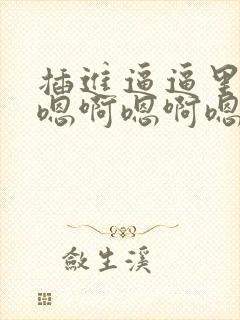 插进逼逼里
嗯啊嗯啊嗯
敛生溪